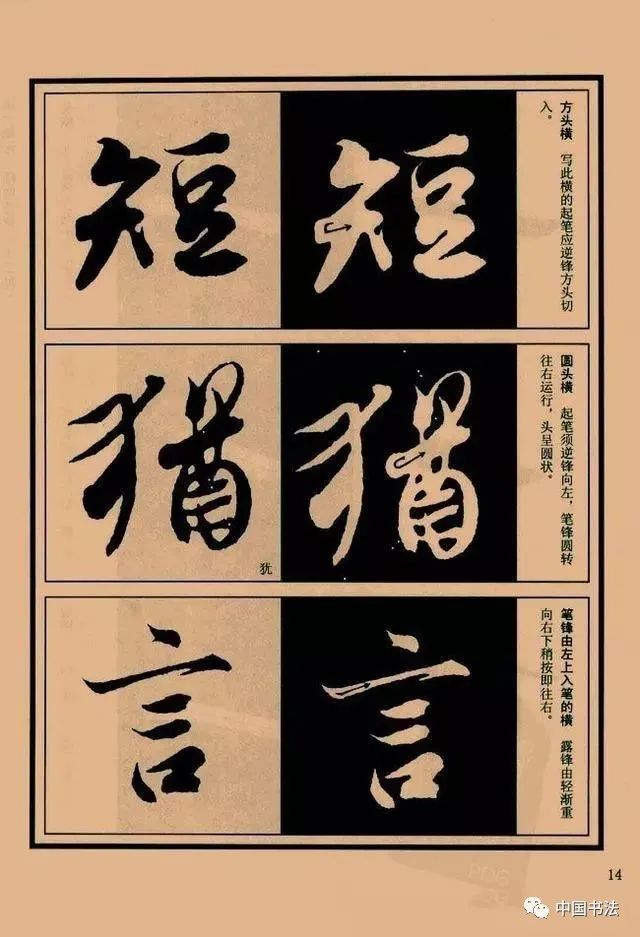 短
短
方头横 写此横的起笔应逆锋方头切
入。
猶
犹
猶
圆头横 起笔须逆锋向左，笔锋圆转
往右运行，头呈圆状。
言
言
笔锋由左上入笔的横 露锋由轻渐重
向右下稍按即往右。
14
中国书法